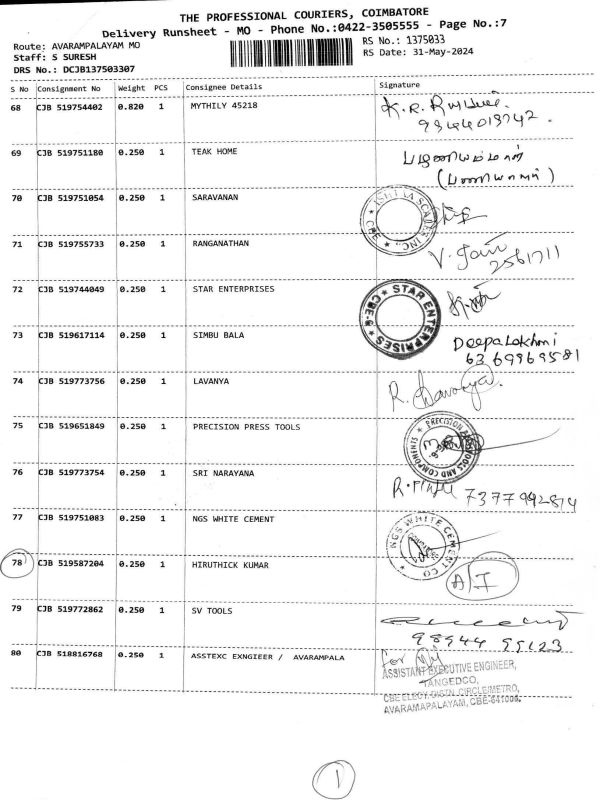 THE PROFESSIONAL COURIERS, COIMBATORE
Delivery Runsheet - MO - Phone No.:0422-3505555 - Page No.:7
Route: AVARAMPALAYAM MO
RS No.: 1375033
Staff: S SURESH
RS Date: 31-May-2024
DRS No.: DCJB137503307
S No Consignment No Weight PCS Consignee Details Signature
68 CJB 519754402 0.820 1 MYTHILY 45218
69 CJB 519751180 0.250 1 TEAK HOME
70 CJB 519751054 0.250 1 SARAVANAN
71 CJB 519755733 0.250 1 RANGANATHAN
2561711
72 CJB 519744049 0.250 1 STAR ENTERPRISES
STAR ENTERPRISES
CBE-6
73 CJB 519617114 0.250 1 SIMBU BALA
Deepa Lakhmi
6369969581
74 CJB 519773756 0.250 1 LAVANYA
75 CJB 519651849 0.250 1 PRECISION PRESS TOOLS
76 CJB 519773754 0.250 1 SRI NARAYANA
77 CJB 519751083 0.250 1 NGS WHITE CEMENT
NGS WHITE CEMENT CO
78 CJB 519587204 0.250 1 HIRUTHICK KUMAR
A/I
79 CJB 519772862 0.250 1 SV TOOLS
80 CJB 518816768 0.250 1 ASSTEXC EXNGIEER / AVARAMPALA
for
ASSISTANT EXECUTIVE ENGINEER,
TANGEDCO,
CBE ELECY.DISTN. CIRCLE/METRO,
AVARAMAPALAYAM, CBE-641006.
1